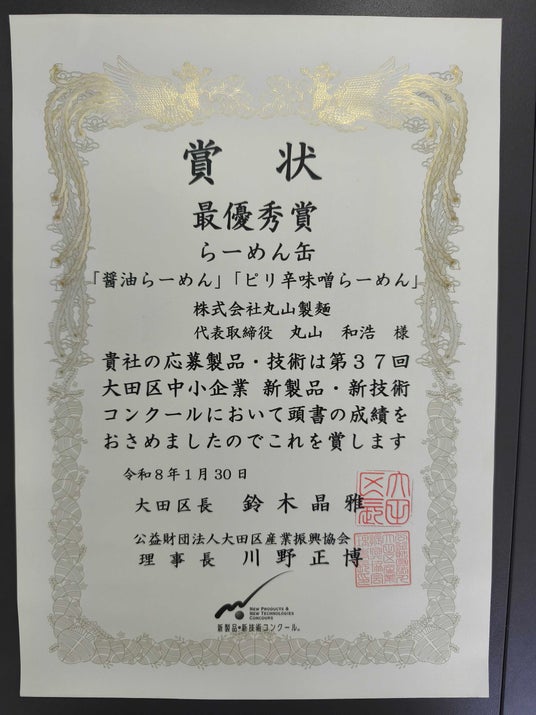 賞状
最優秀賞
らーめん缶
「醤油らーめん」「ピリ辛味噌らーめん」
株式会社丸山製麺
代表取締役 丸山 和浩 様
貴社の応募製品・技術は第37回
大田区中小企業 新製品・新技術
コンクールにおいて頭書の成績を
おさめましたのでこれを賞します
令和8年1月30日
大田区長 鈴木晶雅
公益財団法人大田区産業振興協会
理事長 川野正博
NEW PRODUCTS &
NEW TECHNOLOGIES
CONCOURS
新製品・新技術コンクール。